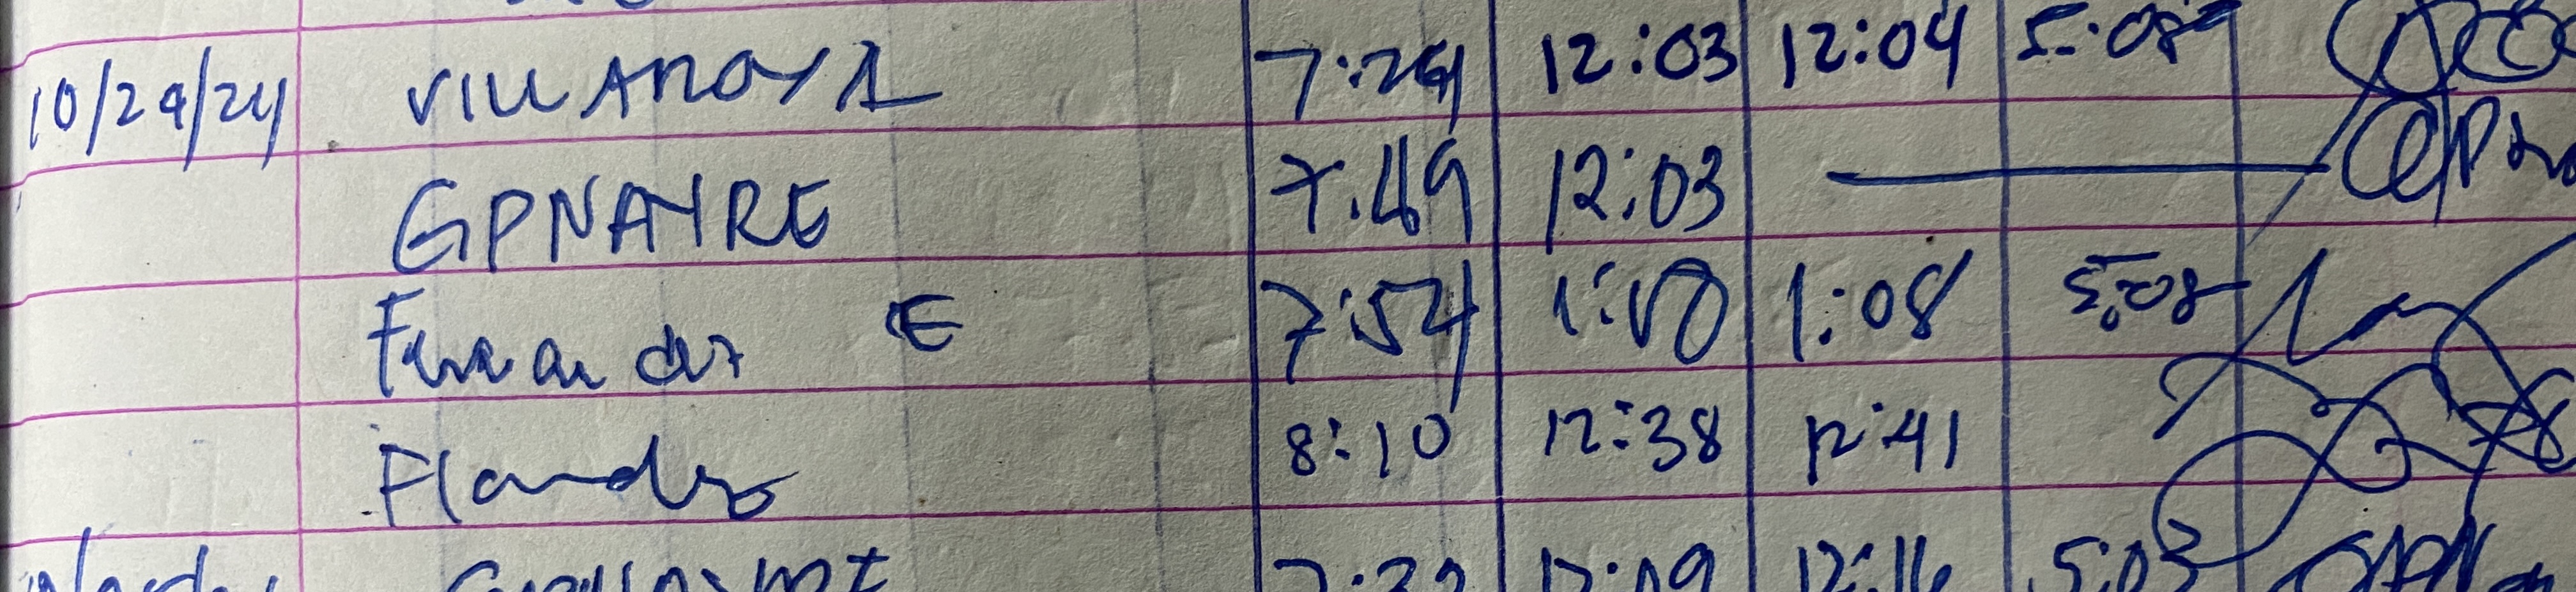 10/29/24 VILLANOYA 7:29 12:03 12:04 5:08
GPNAYRE 7:49 12:03 —
Fernandez E 7:54 1:00 1:08 5:08
Flandez 8:10 12:38 12:41
7:32 12:09 12:16 5:03